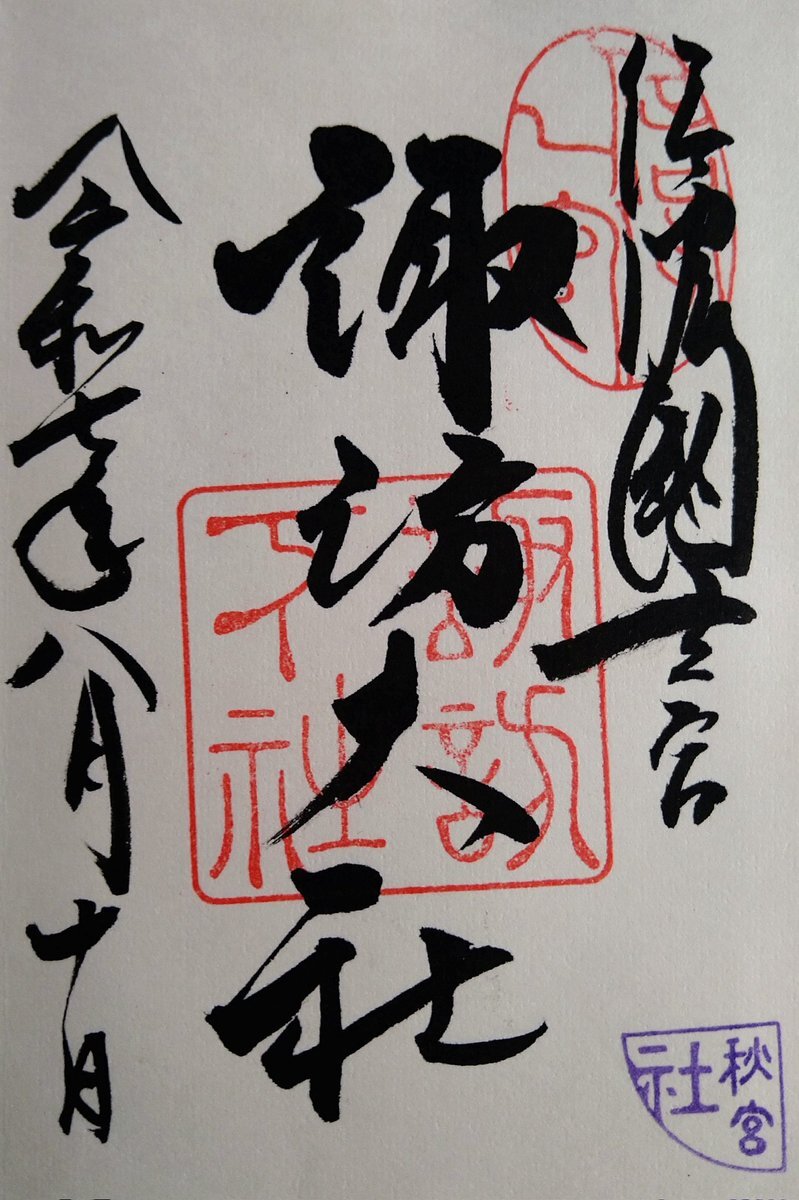 信濃國一之宮
諏訪大社
令和七年八月十日
諏訪
大社
秋宮
社